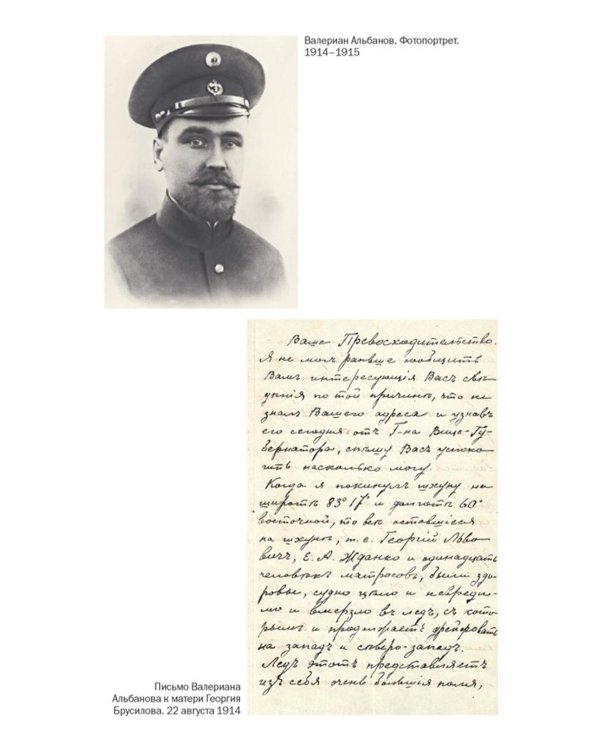 Валериан Альбанов. Фотопортрет.
1914–1915
Ваше Превосходительство.
Я не могъ раньше сообщить
Вамъ интересующія Васъ свѣ-
дѣнія по той причинѣ, что не
зналъ Вашего адреса и узнавъ
его сегодня отъ Г-на Вице-Гу-
бернатора, спѣшу Васъ успоко-
ить насколько могу.
Когда я покинулъ шхуну на
широтѣ 83° 17' и долготѣ 60°
восточной, то всѣ оставшіеся
на шхунѣ, т.е. Георгій Льво-
вичъ, Е. А. Жданко и одинадцать
человѣкъ матросовъ, были здо-
ровы, судно цѣло и невреди-
мо и вмерзло въ ледъ, съ кото-
рымъ и продолжаетъ дрейфовать
на западъ и сѣверо-западъ.
Ледъ этотъ представляетъ
изъ себя очень большія поля,
Письмо Валериана
Альбанова к матери Георгия
Брусилова. 22 августа 1914